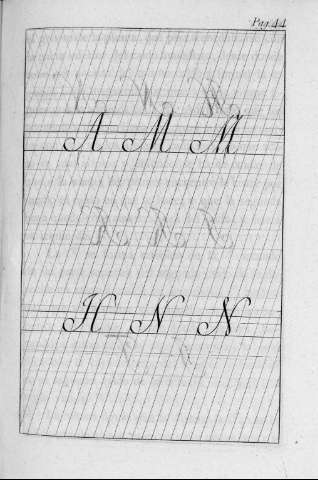 Pag. 44
A M M
H N N